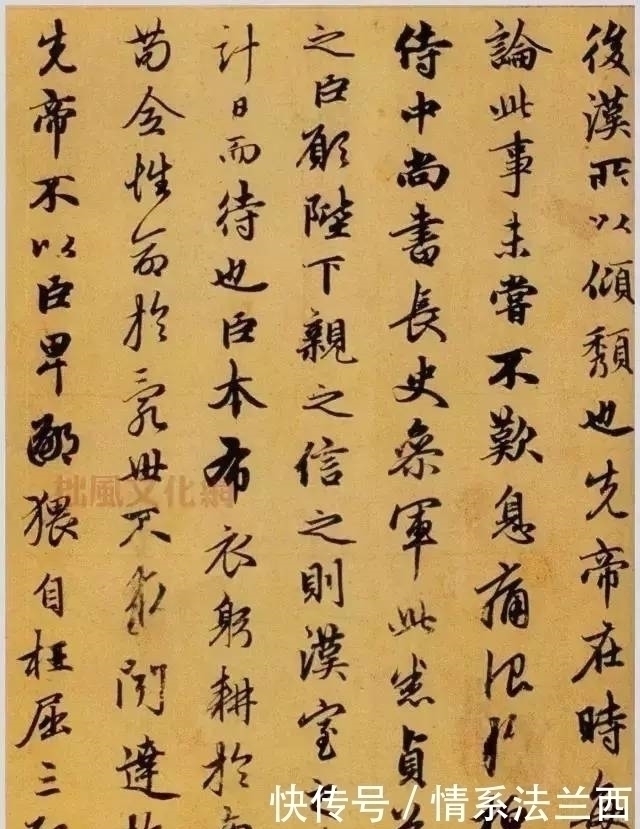 後漢所以傾頹也先帝在時
論此事未嘗不歎息痛恨於
侍中尚書長史參軍此悉貞
之臣願陛下親之信之則漢室
計日而待也臣本布衣躬耕於
苟全性命於亂世不求聞達
先帝不以臣卑鄙猥自枉屈三
拙風文化網
快传号/情系法兰西